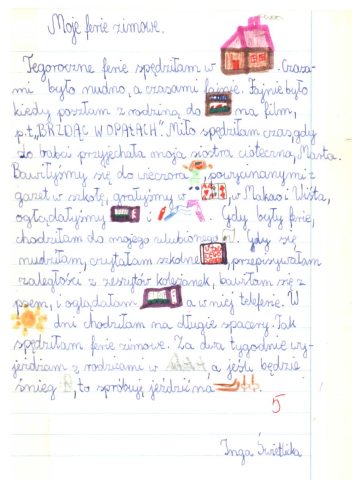 Moje ferie zimowe.
Tegoroczne ferie spędziłam w . Czasa-
mi było nudno, a czasami fajnie. Fajnie było
kiedy poszłam z rodziną do na film,
p.t. „BRZDĄC W OPAŁACH". Miło spędziłam czas, gdy
do babci przyjechała moja siostra cioteczna, Marta.
Bawiłyśmy się do wieczora, powycinanymi z
gazet w szkołę, grałyśmy w , w Makao i Wista,
oglądałyśmy i . Gdy były ferie,
chodziłam do mojego ulubionego . Gdy się
nudziłam, czytałam szkolne , przepisywałam
zaległości z zeszytów koleżanek, bawiłam się z
psem, i oglądałam a w niej teleferie. W
dni chodziłam na długie spacery. Tak
spędziłam ferie zimowe. Za dwa tygodnie wy-
jeżdżam z rodzicami w a jeśli będzie
śnieg , to spróbuję jeździć na
5
Inga Świetlicka